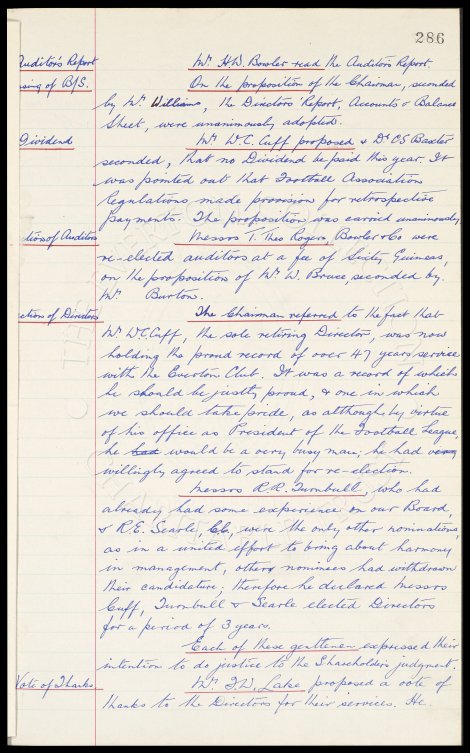 286
Auditor's Report Mr H.W. Bowler read the Auditors Report.
sing of B/S. On the proposition of the Chairman, seconded
by Mr Williams, the Directors Report, Accounts & Balance
Sheet, were unanimously adopted.
Dividend Mr W.C. Cuff proposed & Dr C S Baxter
seconded, that no Dividend be paid this year. It
was pointed out that Football Association
Regulations made provision for retrospective
payments. The proposition was carried unanimously.
tion of Auditors Messrs T. Theo Rogers, Bowler & Co were
re-elected auditors at a fee of Sixty Guineas,
on the proposition of Mr W. Bruce, seconded by
Mr Burton.
ection of Directors The Chairman referred to the fact that
Mr W C Cuff, the sole retiring Director, was now
holding the proud record of over 47 years service
with the Everton Club. It was a record of which
he should be justly proud, & one in which
we should take pride, as although, by virtue
of his office as President of the Football League,
he had would be a very busy man; he had very
willingly agreed to stand for re-election.
Messrs R.R. Turnbull, who had
already had some experience on our Board,
& R.E. Searle, were the only other nominations,
as in a united effort to bring about harmony
in management, other nominees had withdrawn
their candidature; therefore he declared Messrs
Cuff, Turnbull & Searle elected Directors
for a period of 3 years.
Each of these gentlemen expressed their
intention to do justice to the Shareholders judgment.
Vote of Thanks Mr F.W. Lake proposed a vote of
thanks to the Directors for their services. He